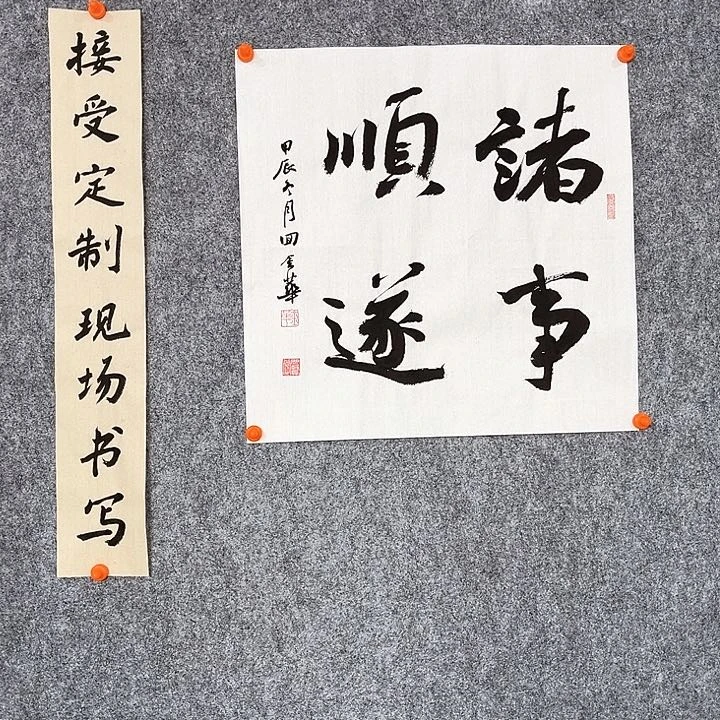 接受定制现场书写
諸事
順遂
甲辰冬月田金華